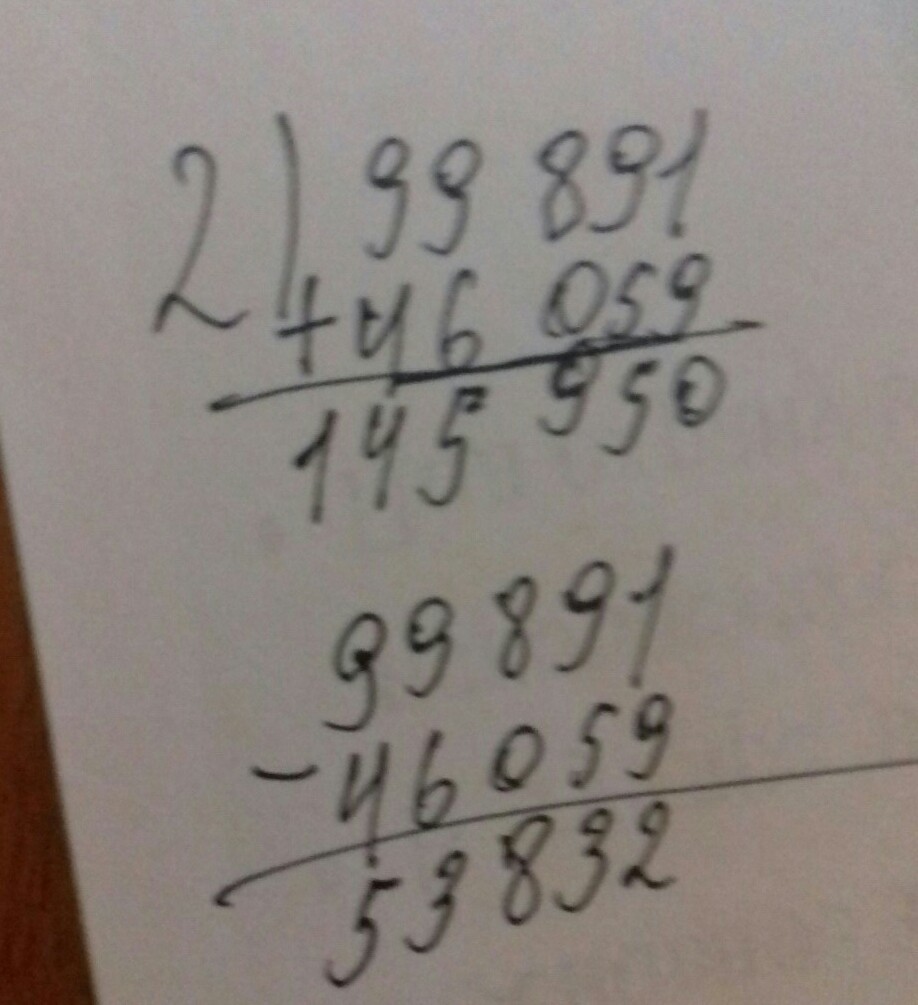 2) 99 891
+ 46 059
145 950
99891
- 46059
53832